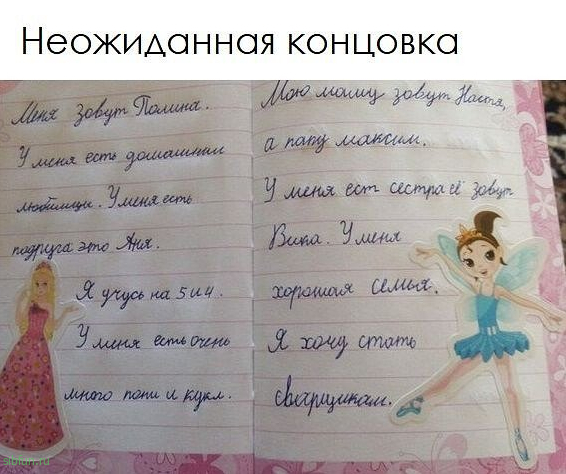 Неожиданная концовка
Меня зовут Полина.
У меня есть домашнии
любимици. У меня есть
подруга это Аня.
Я учусь на 5 и 4.
У меня есть очень
много пони и кукл.
Мою маму зовут Настя,
а папу максим.
У меня ест сестра её зовут
Вика. У меня
хорошая семья.
Я хочу стать
сварщиком.